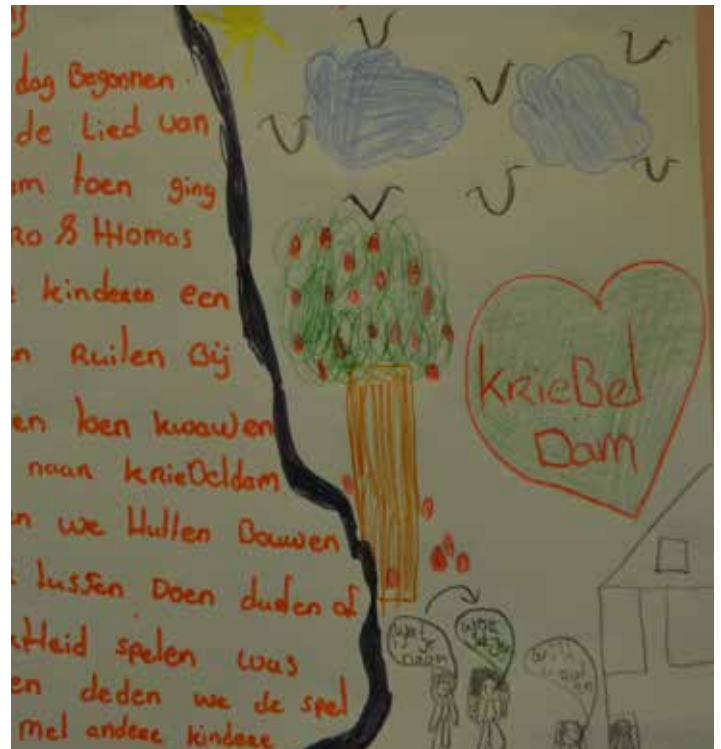 dag Begonnen
de Lied van
toen ging
Ro & Thomas
kinderen een
Ruilen Bij
en toen kwawen
naar KrieBeldam
we Hutten Bouwen
tussen Doen duden of
Heid spelen was
en deden we de spel
met andere kindere
KrieBel
Dam
naam